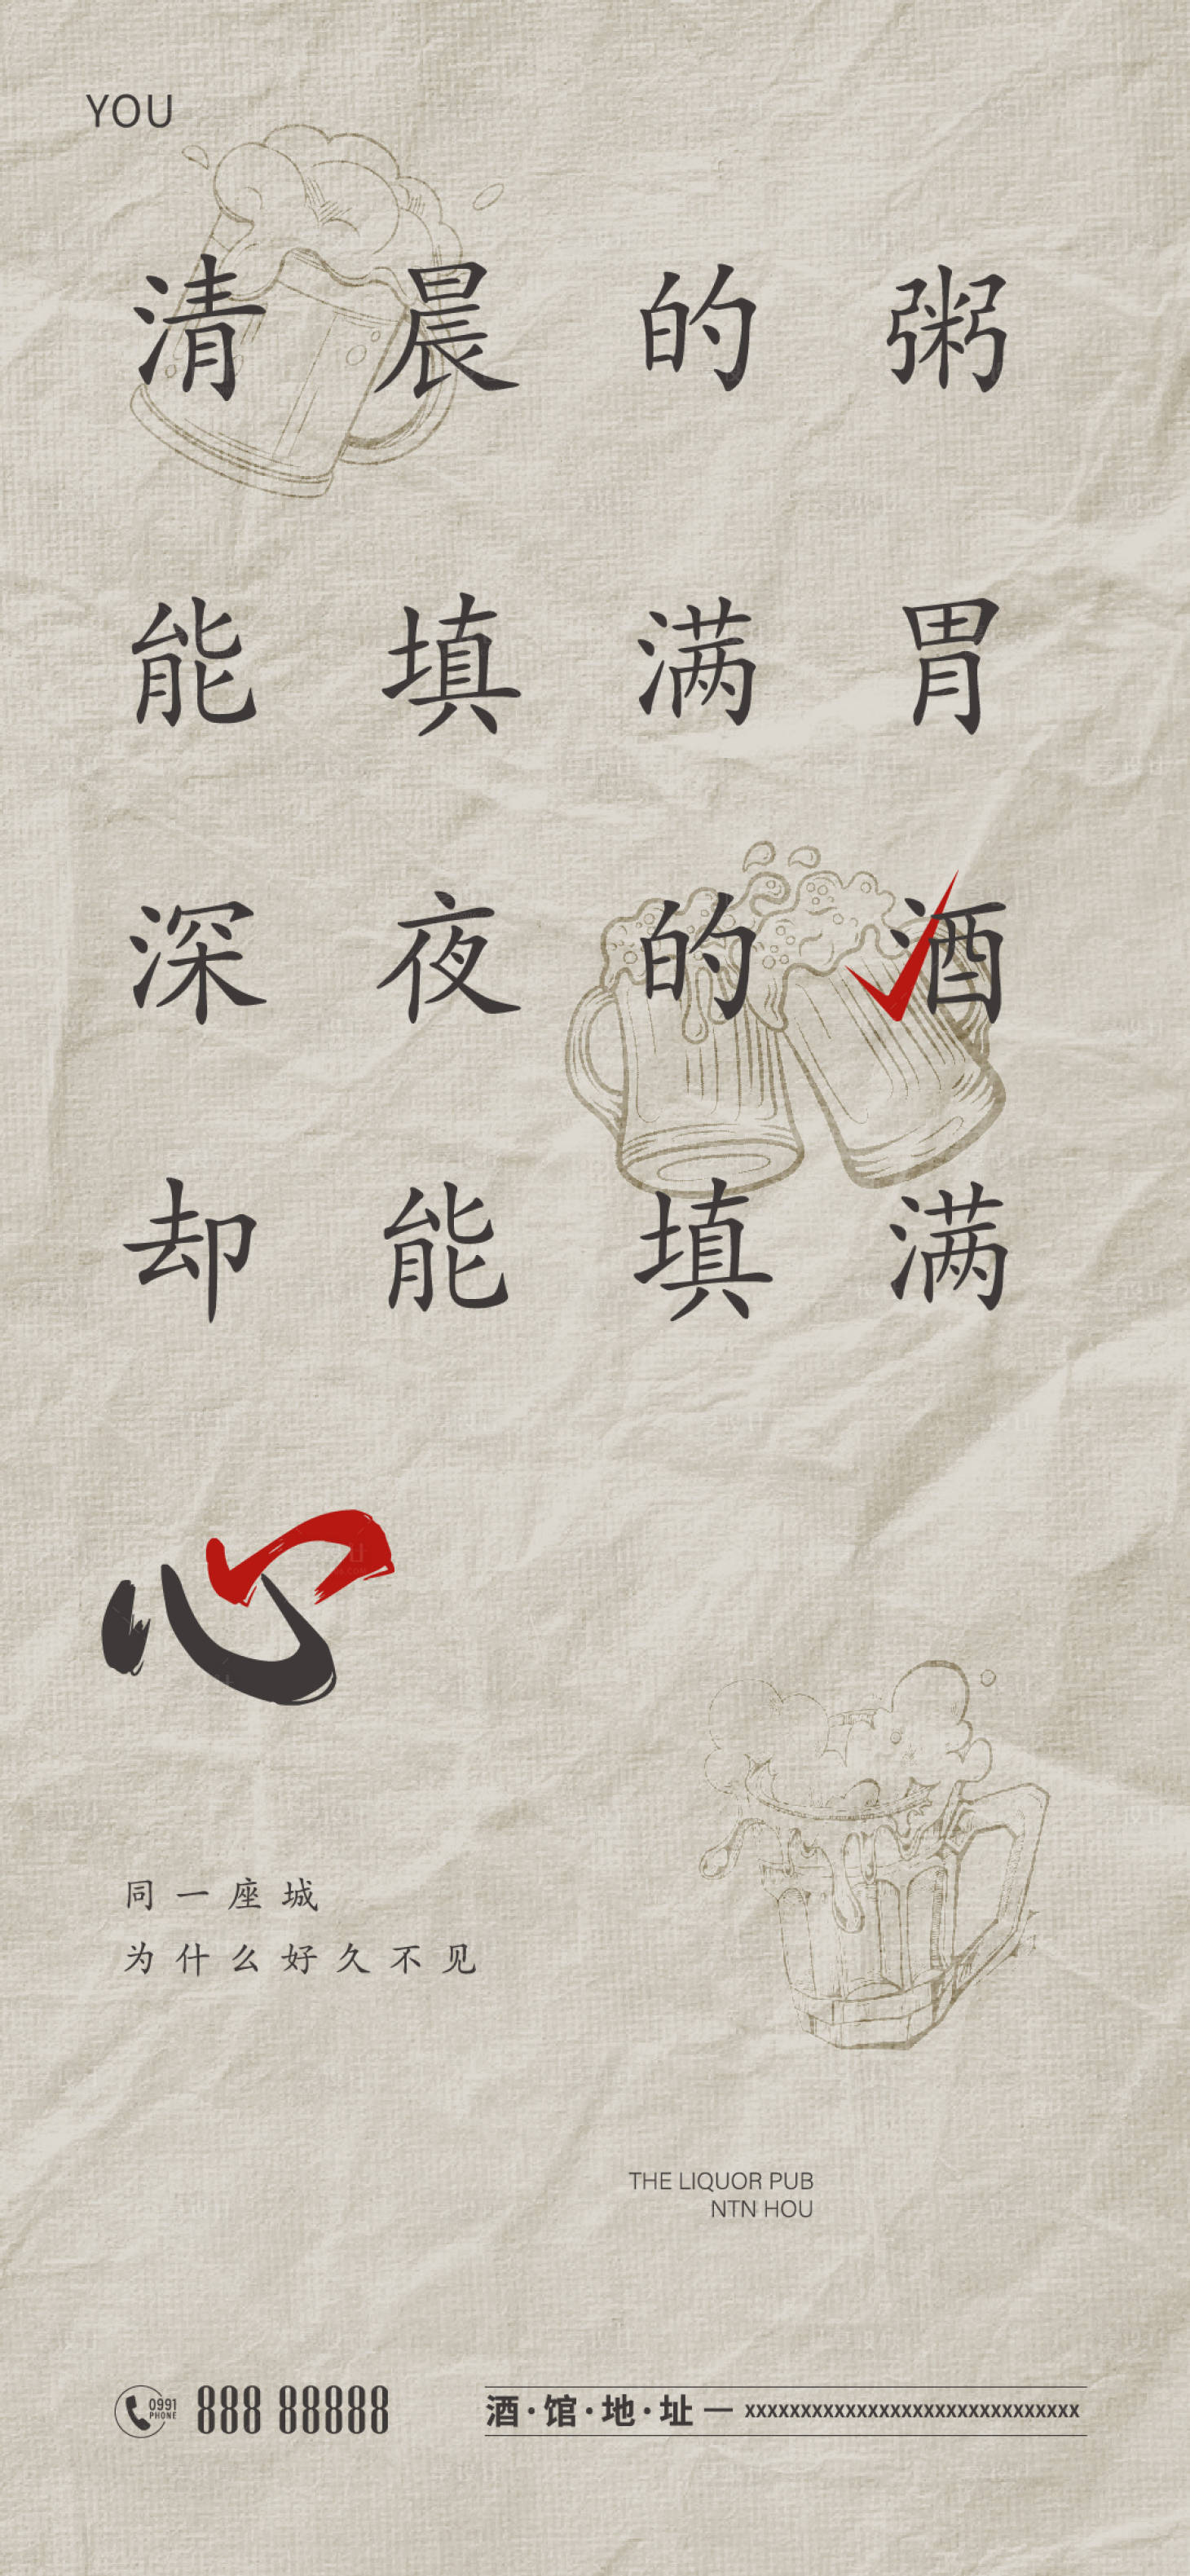 YOU
清晨的粥
能填满胃
深夜的酒
却能填满
心
同一座城
为什么好久不见
THE LIQUOR PUB
NTN HOU
0991
PHONE
888 88888
酒·馆·地·址 — xxxxxxxxxxxxxxxxxxxxxxxxxxxxxx